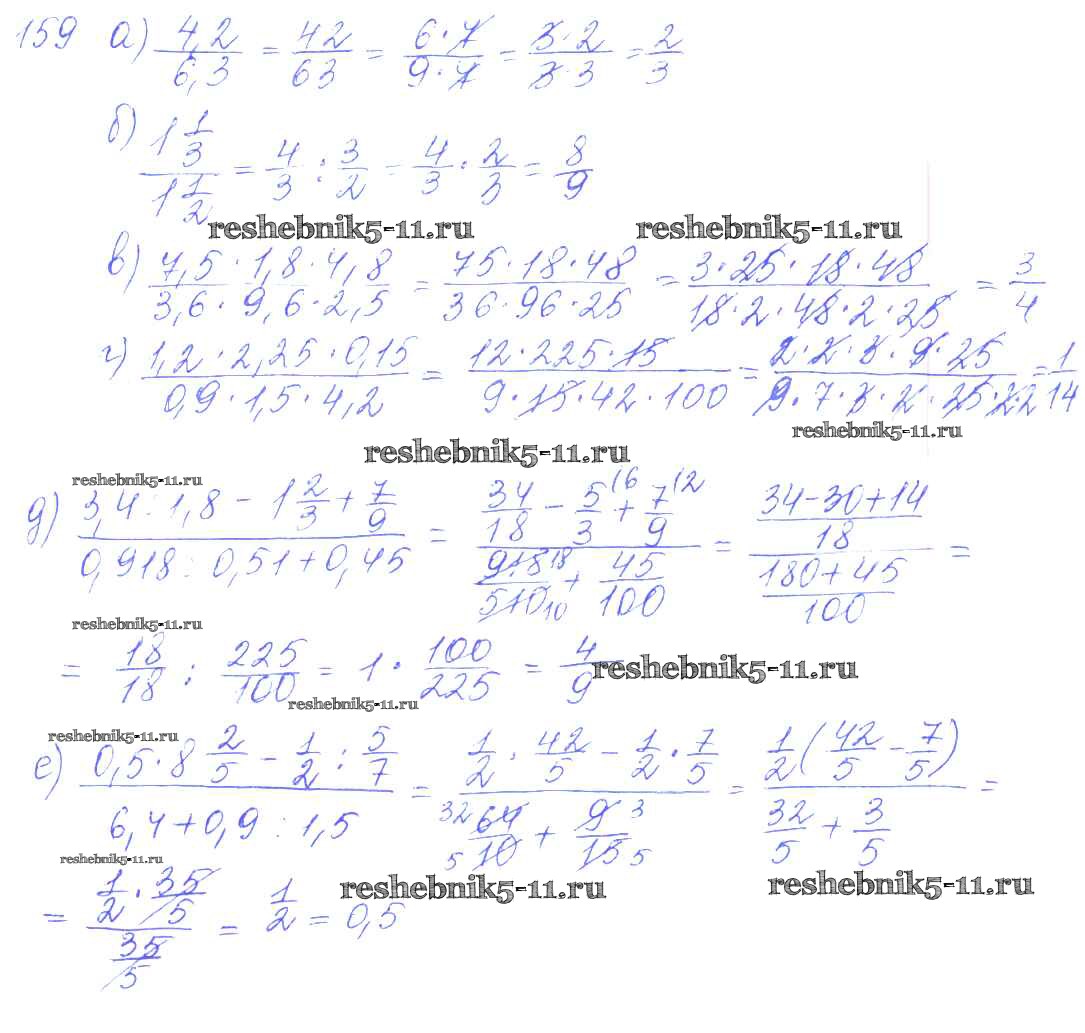 159 а) 4,2/6,3 = 42/63 = 6·7/9·7 = 3·2/3·3 = 2/3
б) 1 1/3 / 1 1/2 = 4/3 : 3/2 = 4/3 · 2/3 = 8/9
reshebnik5-11.ru reshebnik5-11.ru
в) 7,5·1,8·4,8/3,6·9,6·2,5 = 75·18·48/36·96·25 = 3·25·18·48/18·2·48·2·25 = 3/4
г) 1,2·2,25·0,15/0,9·1,5·4,2 = 12·225·15/9·15·42·100 = 2·2·3·9·25/9·7·3·2·25·2·2 = 1/14
reshebnik5-11.ru
reshebnik5-11.ru
reshebnik5-11.ru
д) 3,4:1,8 - 1 2/3 + 7/9 / 0,918:0,51+0,45 = 34/18 - 5/3 (6 + 7/9 (2 / 918 18/510 10 + 45/100 = 34-30+14/18 / 180+45/100 =
reshebnik5-11.ru
= 18/18 : 225/100 = 1 · 100/225 = 4/9
reshebnik5-11.ru
reshebnik5-11.ru
reshebnik5-11.ru
е) 0,5·8 2/5 - 1/2 : 5/7 / 6,4+0,9:1,5 = 1/2 · 42/5 - 1/2 · 7/5 / 32 64/5 10 + 9 3/15 5 = 1/2 (42/5 - 7/5) / 32/5 + 3/5 =
reshebnik5-11.ru
reshebnik5-11.ru reshebnik5-11.ru
= 1/2 · 35/5 / 35/5 = 1/2 = 0,5